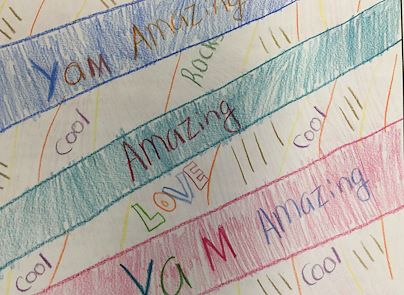 Yam Amazing
Rocks
Cool
Amazing
Cool
LOVE
Yam Amazing
Cool
Cool